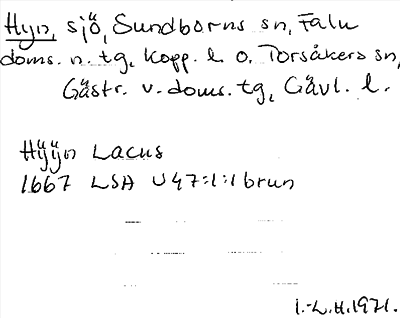 Hyn, sjö, Sundborns sn, Falu
doms. n. tg, Kopp. l. o. Torsåkers sn,
Gästr. v. doms. tg, Gävl. l.
Hÿÿn Lacus
1667 LSA U47:1:1 brun
I.-L.H. 1971.